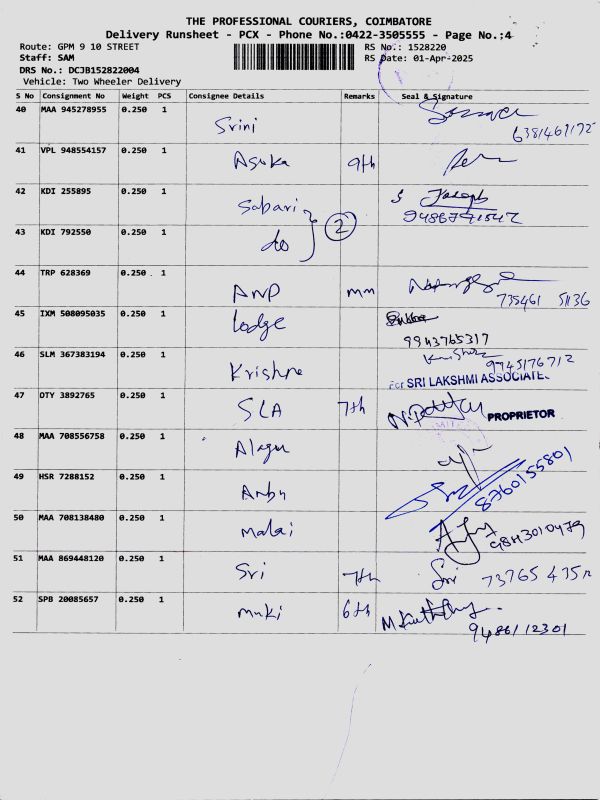 THE PROFESSIONAL COURIERS, COIMBATORE
Delivery Runsheet - PCX - Phone No.:0422-3505555 - Page No.:4
Route: GPM 9 10 STREET RS No.: 1528220
Staff: SAM RS Date: 01-Apr-2025
DRS No.: DCJB152822004
Vehicle: Two Wheeler Delivery
S No Consignment No Weight PCS Consignee Details Remarks Seal & Signature
40 MAA 945278955 0.250 1 Srini
41 VPL 948554157 0.250 1 Asuka 9th
42 KDI 255895 0.250 1 Sabari Joseph
43 KDI 792550 0.250 1 do 2
44 TRP 628369 0.250 . 1 ANP mm
735461 51136
45 IXM 508095035 0.250 1 Lodge
9943765317
46 SLM 367383194 0.250 1 Krishna 9745176712
For SRI LAKSHMI ASSOCIATE
47 DTY 3892765 0.250 1 SLA 7th PROPRIETOR
48 MAA 708556758 0.250 1 Alagu
49 HSR 7288152 0.250 1 Anbu 8760155801
50 MAA 708138480 0.250 1 Malai
51 MAA 869448120 0.250 1 Sri 7th Sri
52 SPB 20085657 0.250 1 muki 6th
9486112301